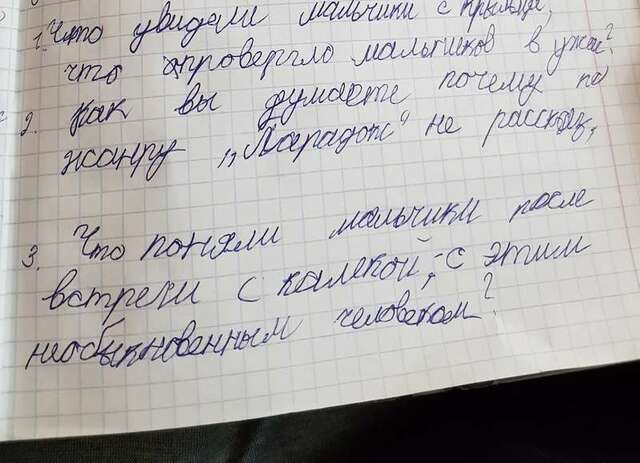 1. Что увидели мальчики с крыльца,
что опровергло мальчиков в ужас?
2. Как вы думаете почему по
жанру „Парадокс“ не рассказ,
3. Что поняли мальчики после
встречи с калекой, с этим
необыкновенным человеком?